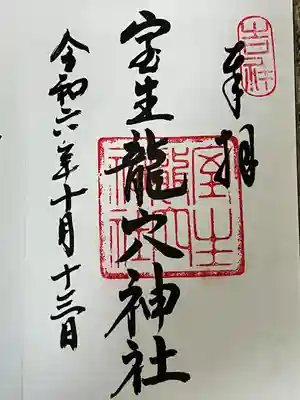 奉拝
室生龍穴神社
室生龍穴神社
令和六年十月十三日